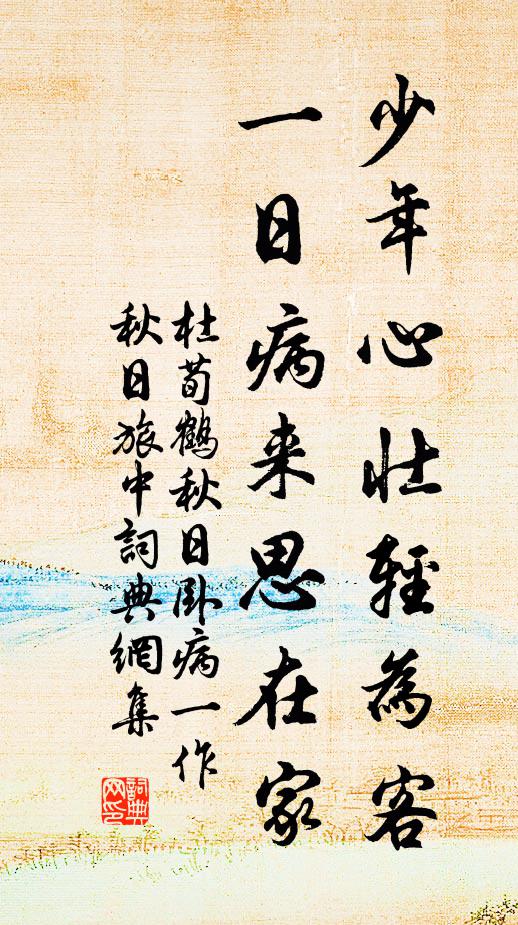 少年心壮輕為客
一日病来思在家
杜荀鶴秋日卧病一作
秋日旅中詞典網集
詞典网印